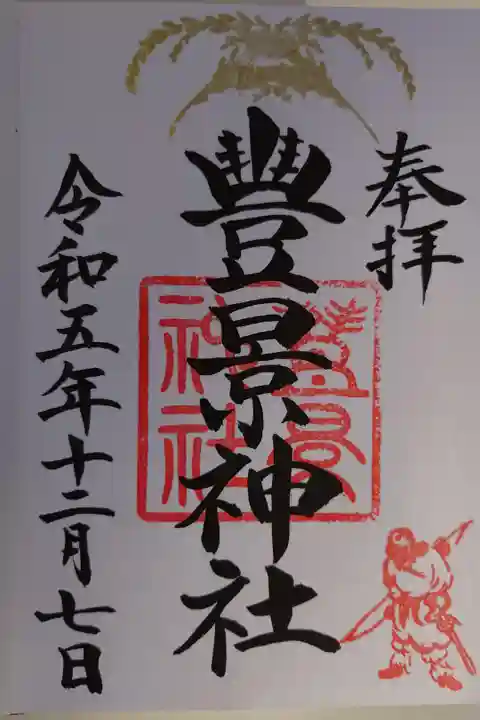 奉拝
豐景神社
令和五年十二月七日
豐景
神社